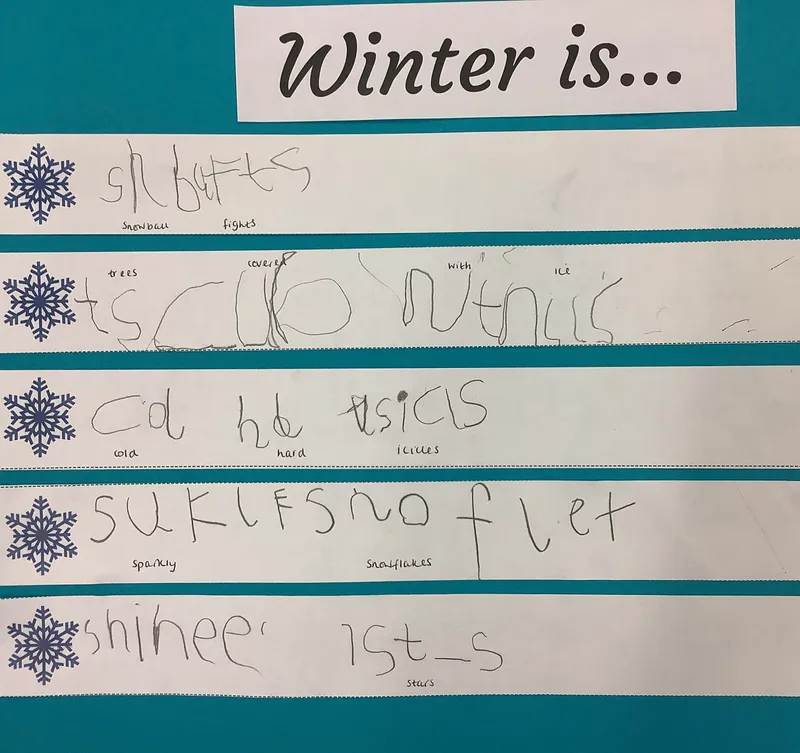 Winter is...
sn bufts
snowball fights
trees covered with ice
cd hd isicls
cold hard icicles
suklf sno flet
sparkly snowflakes
shinee st_s
stars